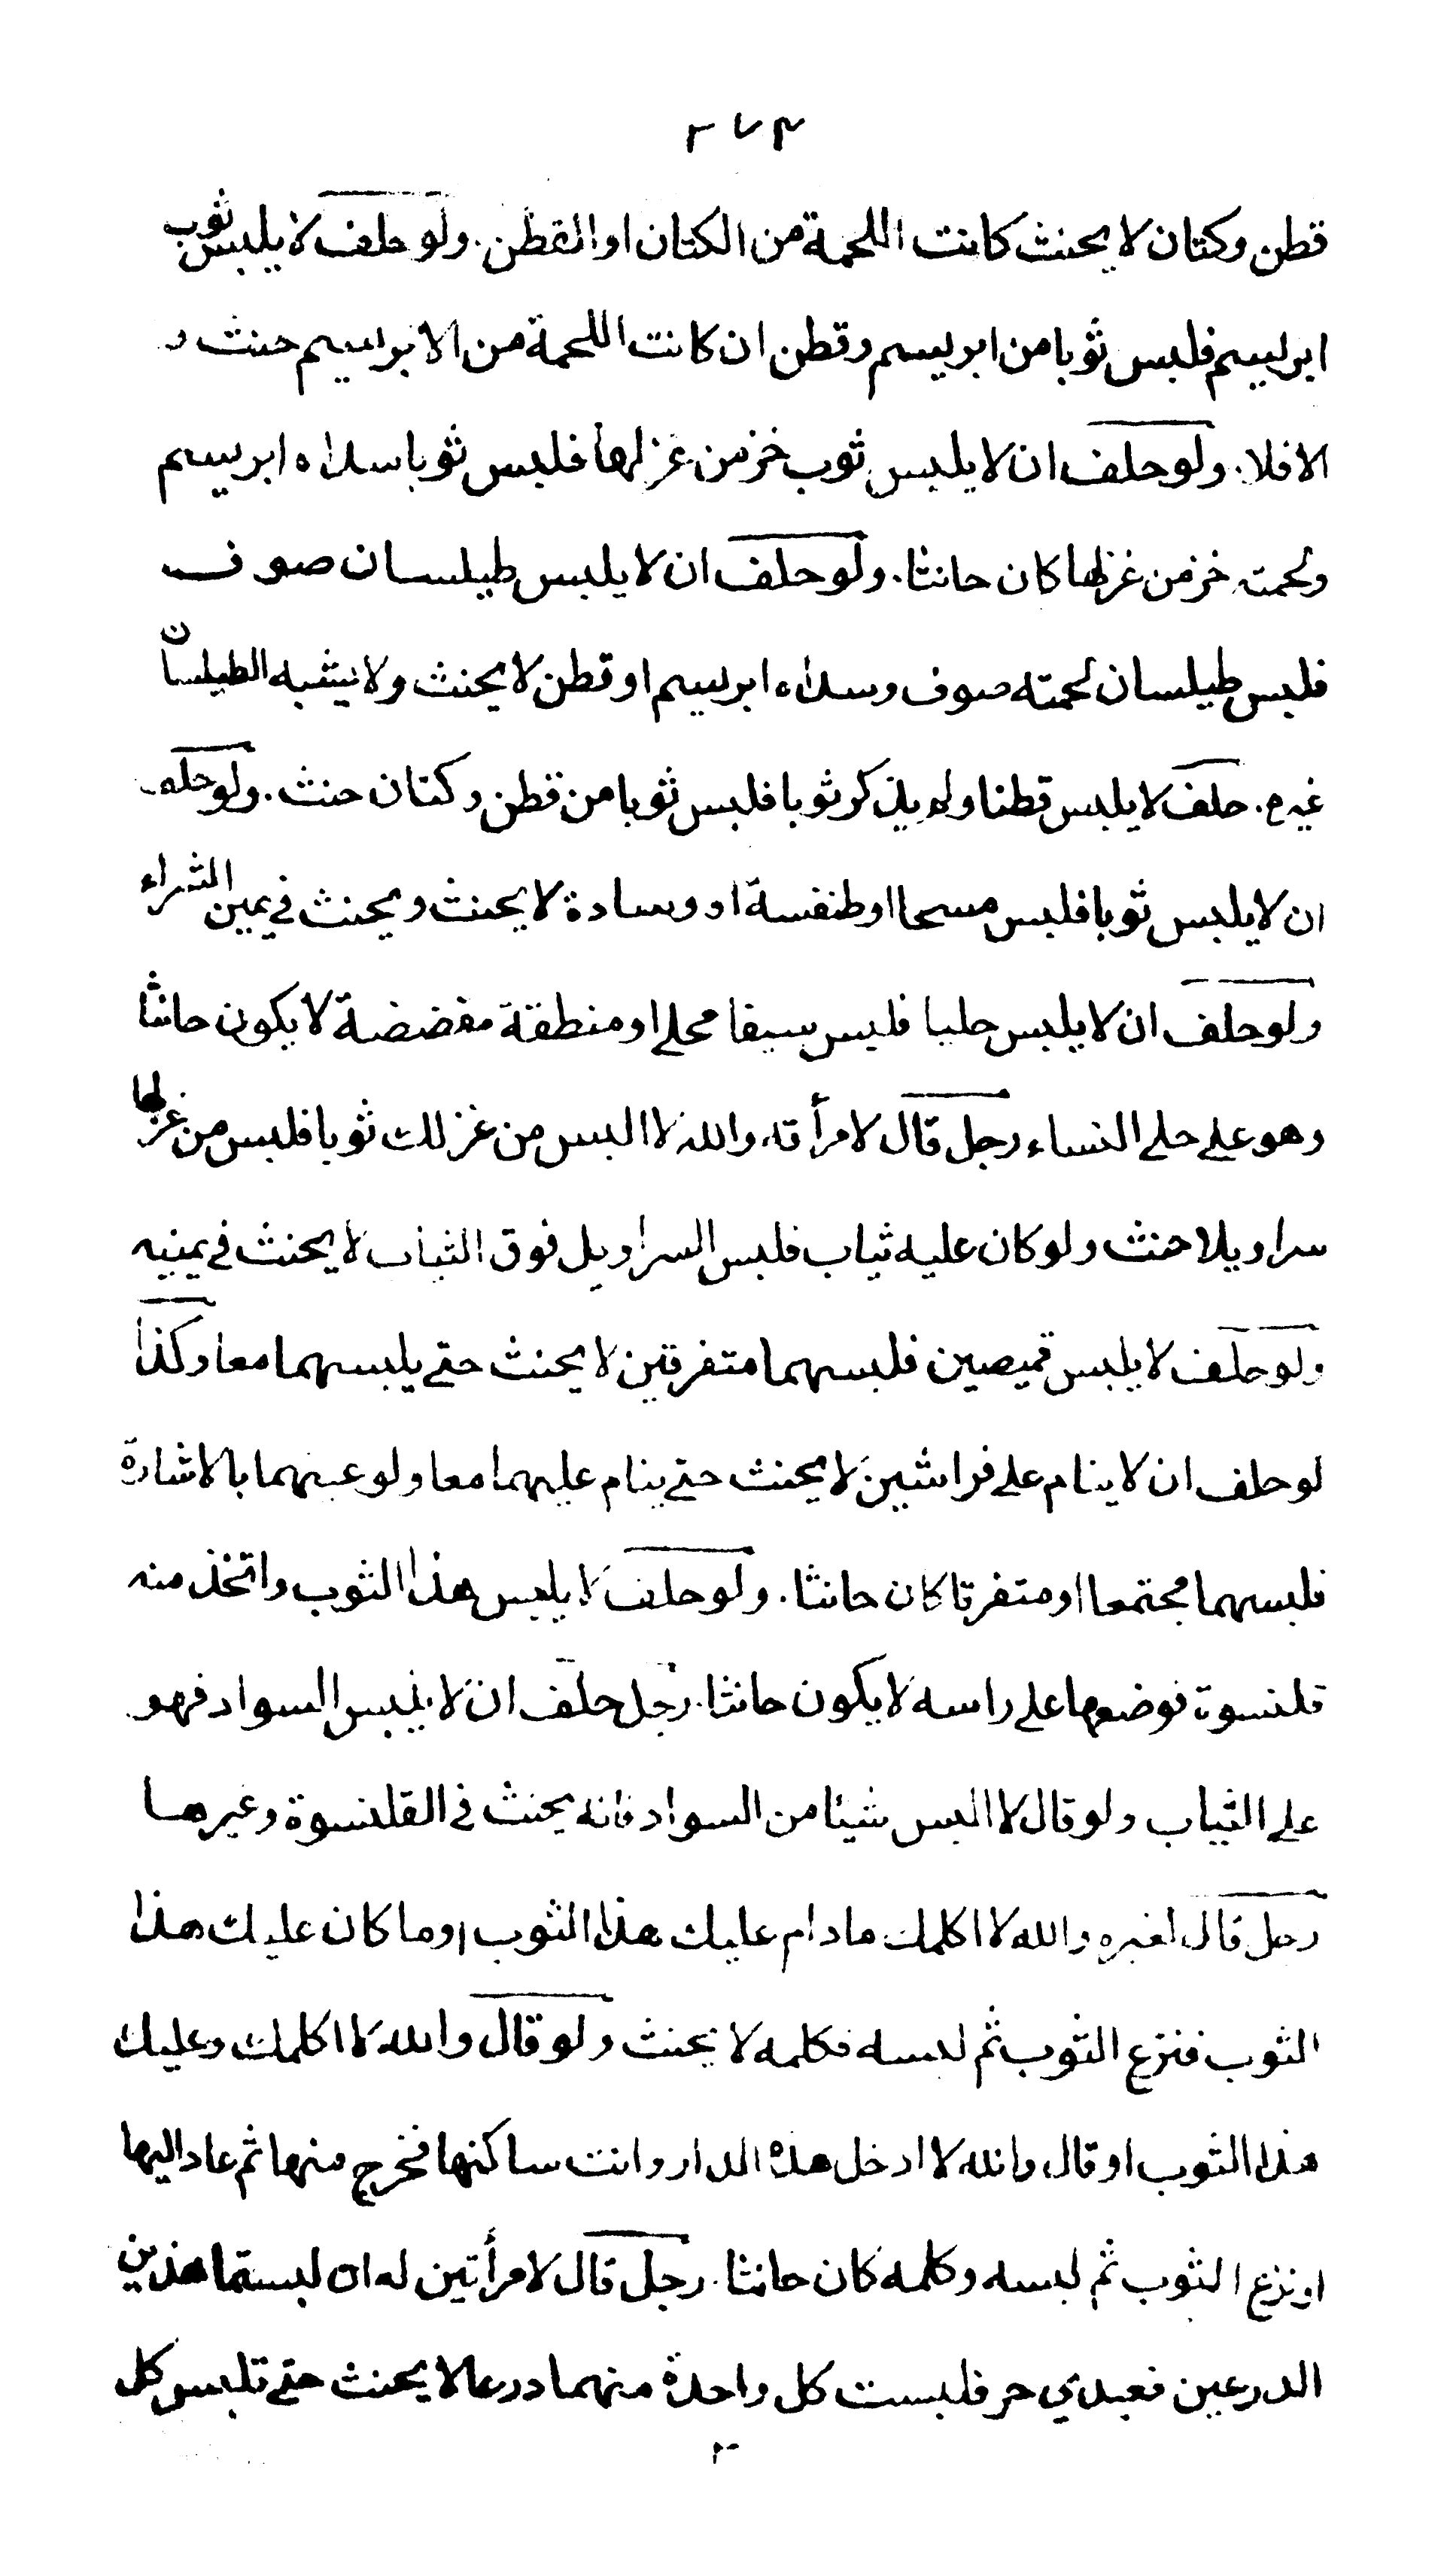 ٢٧٣
قطن وكتان لا يحنث كانت اللحمة من الكتان او القطن. ولو حلف لا يلبس ثوب
ابريسم فلبس ثوبا من ابريسم وقطن ان كانت اللحمة من الابريسم حنث و
الا فلا. ولو حلف ان لا يلبس ثوب خز من غزلها فلبس ثوبا سداه ابريسم
ولحمته خز من غزلها كان حانثا. ولو حلف ان لا يلبس طيلسان صوف
فلبس طيلسان لحمته صوف وسداه ابريسم او قطن لا يحنث ولا يشبه الطيلسان
غيره. حلف لا يلبس قطنا ولم يذكر ثوبا فلبس ثوبا من قطن وكتان حنث. ولو حلف
ان لا يلبس ثوبا فلبس مسحا او طنفسة او وسادة لا يحنث ويحنث في يمين الشراء
ولو حلف ان لا يلبس حليا فلبس سيفا محلى او منطقة مفضضة لا يكون حانثا
وهو على حلي النساء رجل قال لامرأته والله لا البس من غزلك ثوبا فلبس من غزلها
سراويلا حنث ولو كان عليه ثياب فلبس السراويل فوق الثياب لا يحنث في يمينه
ولو حلف لا يلبس قميصين فلبسهما متفرقين لا يحنث حتى يلبسهما معا وكذا
لو حلف ان لا ينام على فراشين لا يحنث حتى ينام عليهما معا ولو عينهما بالاشارة
فلبسهما مجتمعا او متفرقا كان حانثا. ولو حلف لا يلبس هذا الثوب واتخذ منه
قلنسوة فوضعها على راسه لا يكون حانثا. رجل حلف ان لا يلبس السواد فهو
على الثياب ولو قال لا البس شيئا من السواد فانه يحنث في القلنسوة وغيرها
رجل قال لغيره والله لا اكلمك ما دام عليك هذا الثوب او ما كان عليك هذا
الثوب فنزع الثوب ثم لبسه فكلمه لا يحنث ولو قال والله لا اكلمك وعليك
هذا الثوب او قال والله لا ادخل هذه الدار وانت ساكنها فخرج منها ثم عاد اليها
او نزع الثوب ثم لبسه وكلمه كان حانثا. رجل قال لامرأتين له ان لبستما هذين
الدرعين فعبدي حر فلبست كل واحدة منهما درعا لا يحنث حتى تلبس كل